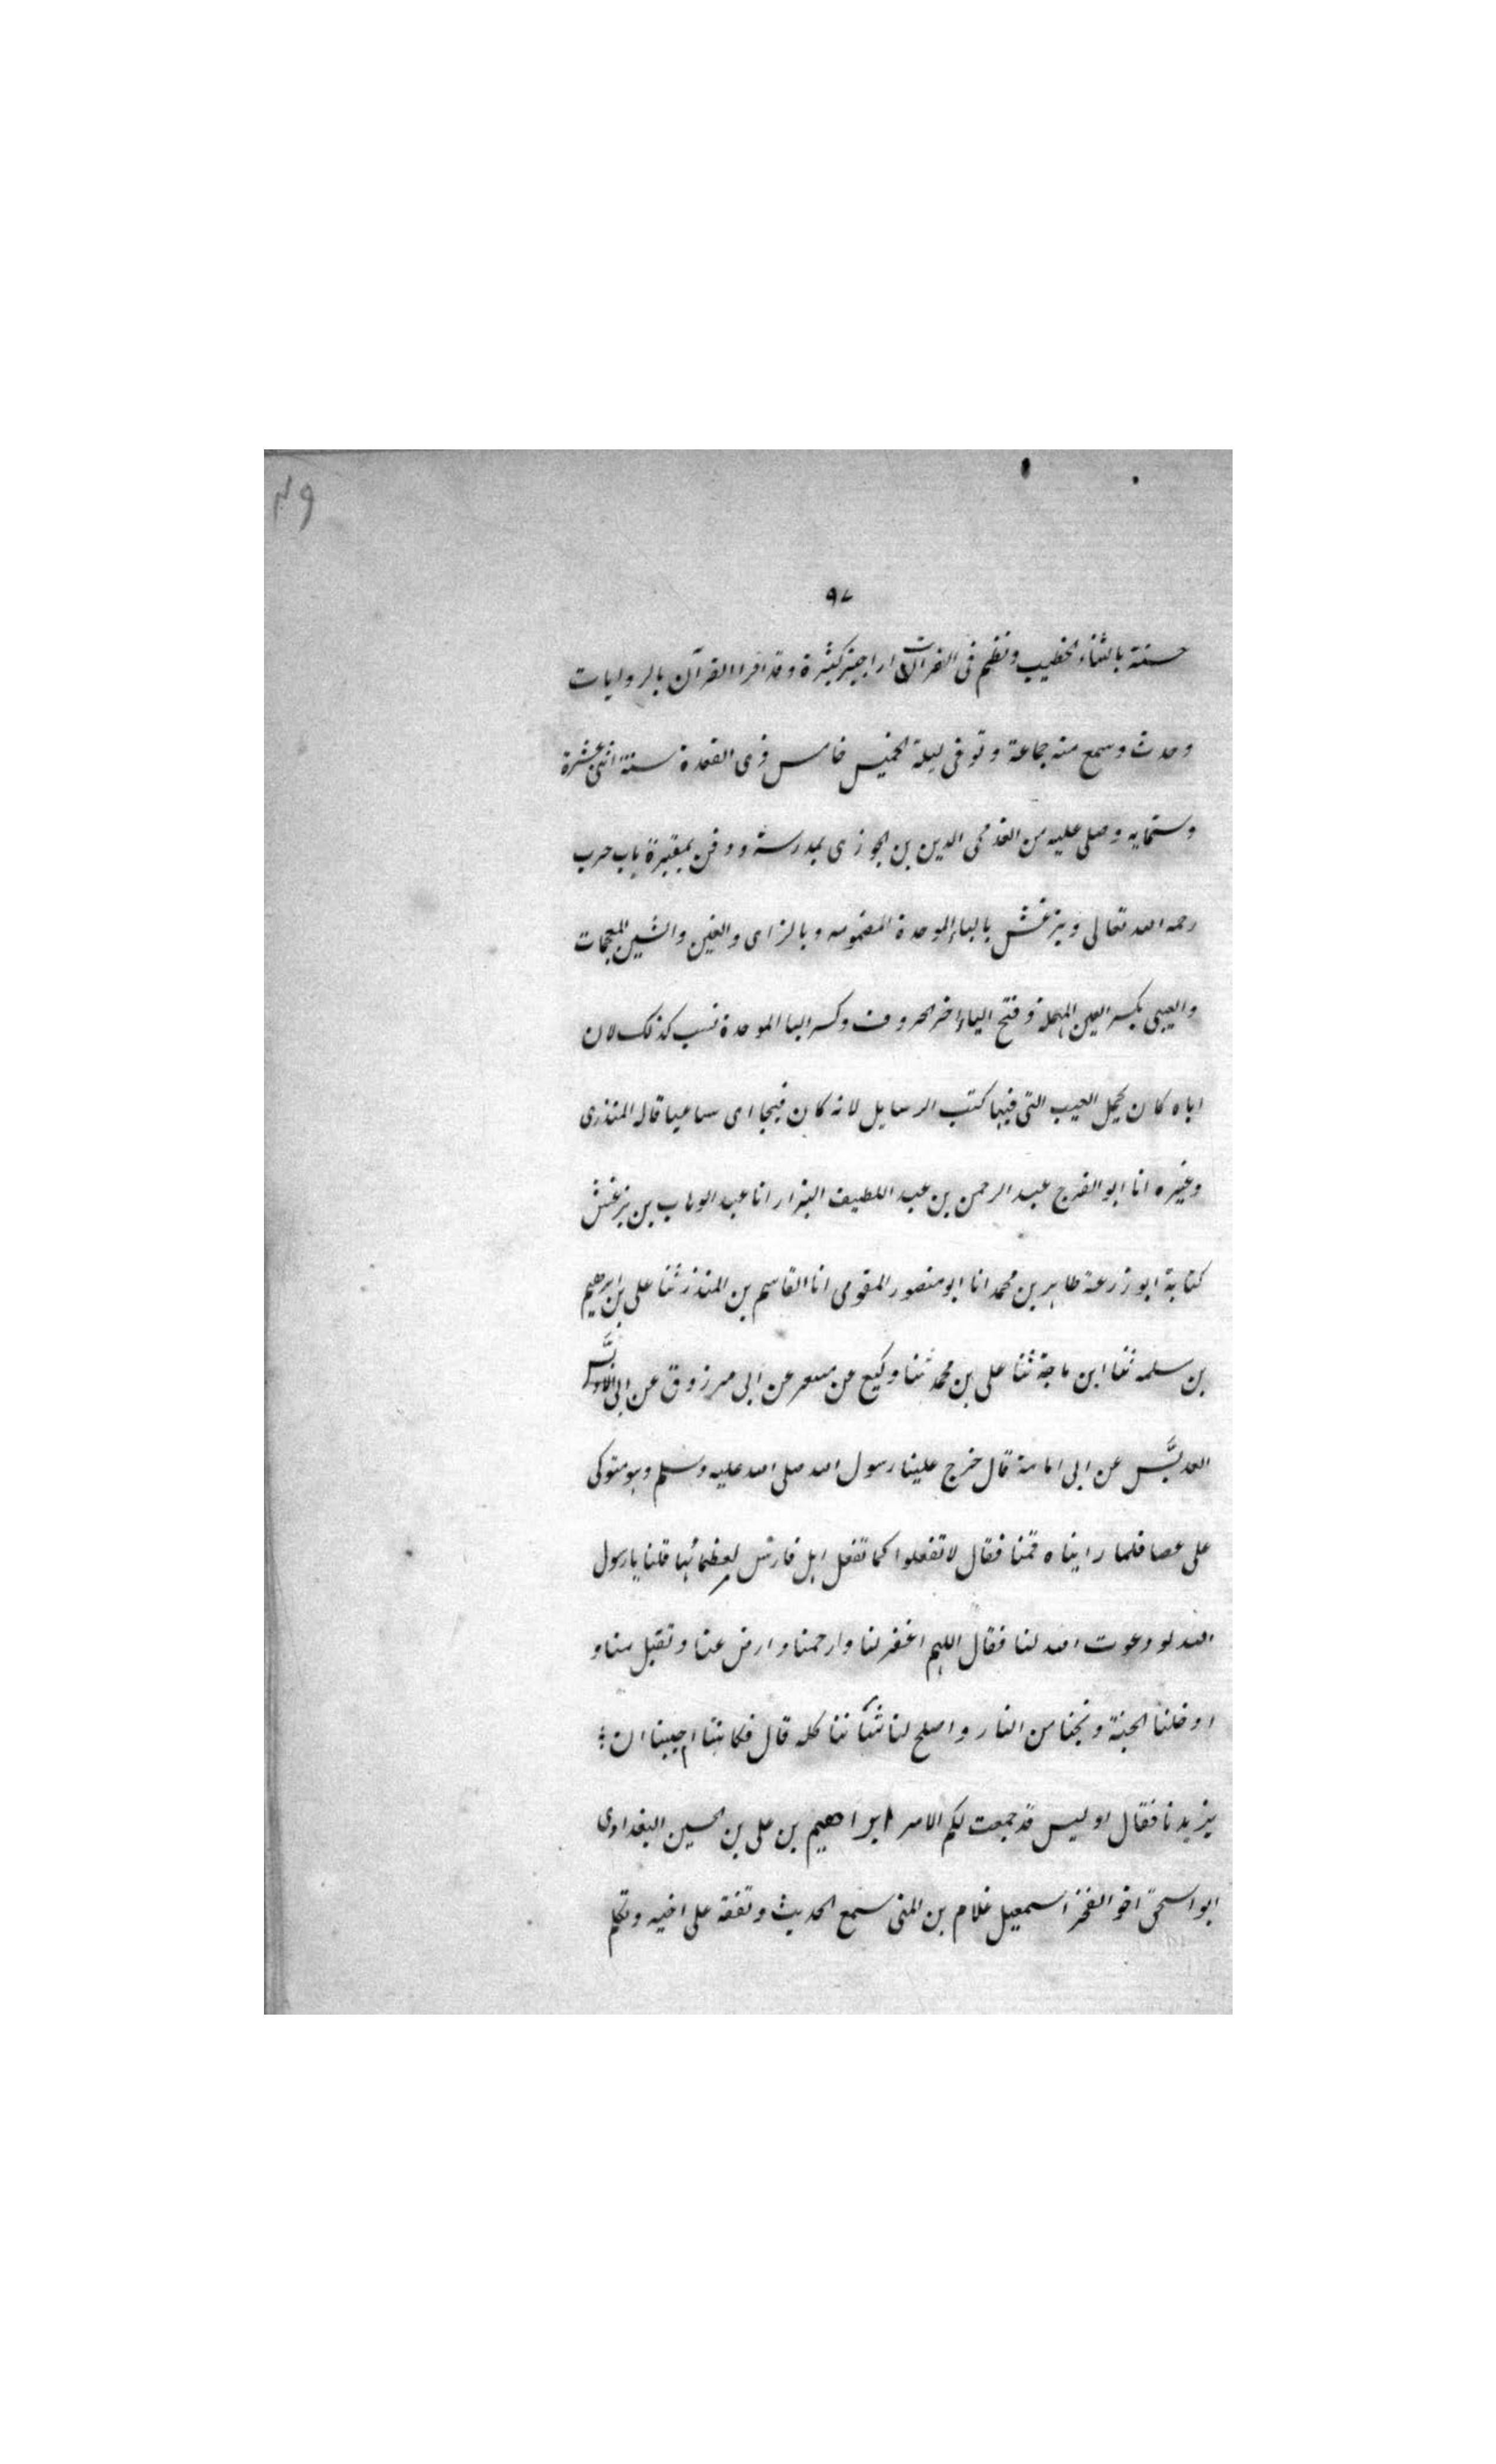 ٩٧
حسنة بانشاء الخطيب ونظم فى القراآت اراجيز كثيرة وقد اقرا القرآن بالروايات
وحدث وسمع منه جماعة وتوفى ليلة الخميس خامس ذى القعدة سنة اثنى عشرة
وستمايه وصلى عليه من الغد محى الدين بن الجوزى بمدرسته ودفن بمقبرة باب حرب
رحمه الله تعالى وبزغش بالباء الموحدة المضمومه وبالزاى والغين والشين المعجمات
والعيبى بكسر العين المهملة وفتح الياء اخر الحروف وكسر البا الموحدة نسب كذلك لان
اباه كان يحمل العيب التى فيها كتب الرسايل لانه كان فيجا اى ساعيا قاله المنذرى
وغيره انا ابو الفرج عبد الرحمن بن عبد اللطيف البزار انا عبد الوهاب بن بزغش
كتابة ابو زرعة طاهر بن محمد انا ابو منصور المقومى انا القاسم بن المنذر ثنا على بن ابرهيم
بن سلمه ثنا ابن ماجة ثنا على بن محمد ثنا وكيع عن مسعر عن ابى مرزوق عن ابى
العدبَّس عن ابى امامة قال خرج علينا رسول الله صلى الله عليه وسلم وهو متوكى
على عصا فلما رايناه قمنا فقال لا تفعلوا كما تفعل اهل فارس لعظمائها قلنا يا رسول
الله لو دعوت الله لنا فقال اللهم اغفر لنا وارحمنا وارض عنا وتقبل منا و
ادخلنا الجنة ونجنا من النار واصلح لنا شأننا كله قال فكاننا احببنا ان
يزيدنا فقال اوليس قد جمعت لكم الامر ابراهيم بن على بن الحسين البغدادى
ابو اسحق اخو الفخر اسمعيل غلام بن المنى سمع الحديث وتفقه على اخيه وتكلم